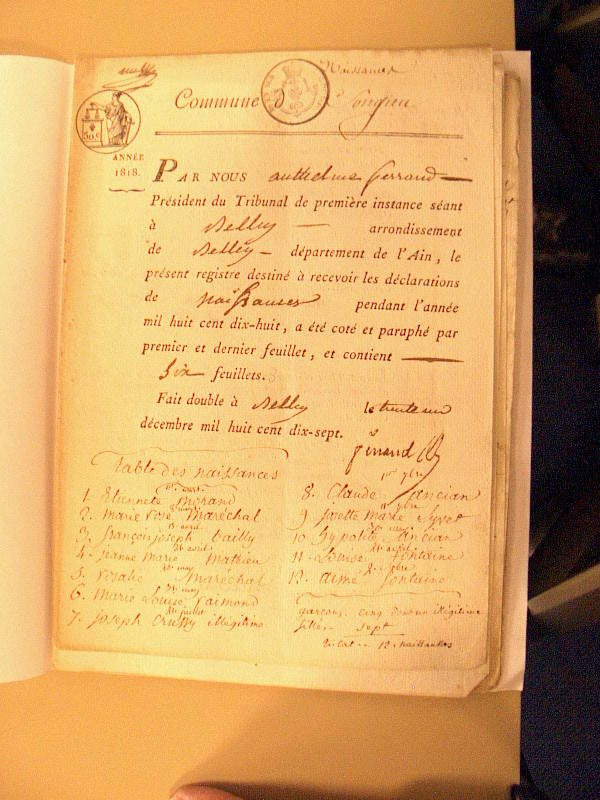 Naissances
Commune d
50c
ANNÉE
1818.
PAR NOUS anthelme ferrand
Président du Tribunal de première instance séant
à Belley arrondissement
de Belley département de l'Ain, le
présent registre destiné à recevoir les déclarations
de naissances pendant l'année
mil huit cent dix-huit, a été coté et paraphé par
premier et dernier feuillet, et contient
Six feuillets.
Fait double à Belley le trente un
décembre mil huit cent dix-sept.
ferrand
table des naissances
1. Etiennete Morand
2. Marie Rose Maréchal
3. françois joseph Bailly
4. jeanne Marie Mathieu
5. rosalie Maréchal
6. Marie Louise Raimond
7. joseph illégitime
8. Claude ancian
9 josette Marie
10 hypolite ancian
11. Louise fontaine
12. aimé fontaine
garçons, cinq dont un illégitime
filles, sept
12. naissances